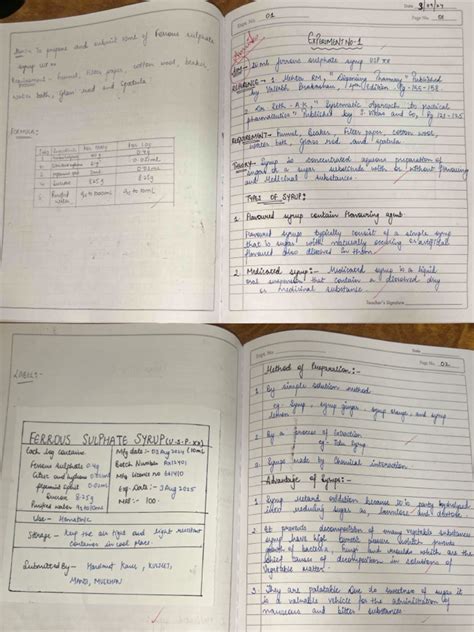 Aim:- To prepare and submit 10ml of Ferrous sulphate
syrup USP XX
Requirement:- funnel, filter paper, cotton wool, beaker
water bath, glass rod and spatula
FORMULA:-
For 10g
0.4g
0.02ml
8.25g
Purified water
Expt. No. 01
Date 3/09/24
Page No. 01
EXPERIMENT NO-1
AIM:- 10ml ferrous sulphate syrup USP XX
REFERENCE:- 1. Mehta RM, "Dispensing Pharmacy" Published
by. Vallabh Prakashan, Edition, Pg-155-158.
"Systematic Approach to practical
pharmaceutics" Published by S. Vikas and Co, Pg 121-125
REQUIREMENT:- Funnel, Beaker, Filter paper, cotton wool,
water bath, Glass rod and spatula
THEORY:- Syrup is concentrated aqueous preparation of
a sugar substitute with or without flavouring
and Medicinal substances.
TYPES OF SYRUP:-
1. Flavoured syrup contain flavouring agent.
Flavoured syrups typically consist of a simple syrup
that is sugar with naturally occuring or artificial
flavoured also dissolved in them
2. Medicated syrup:- Medicated syrup is a liquid
oral suspension that contain a dissolved drug
or medicinal substance.
Teacher's Signature
LABELS:-
FERROUS SULPHATE SYRUP (U.S.P. XX)
10ml
Each 10g contains
Ferrous sulphate 0.4g
Citric acid hydrous
Peppermint spirit 0.02ml
Sucrose 8.25g
Purified water qs to 10ml
Mfg date:- 03 Aug 2024
Batch Number
Mfg licence no
Exp Date:- 3 Aug 2025
Net:- 100
Use - Hematinic
Storage - keep in air tight and light resistant
container in cool place.
Submitted By - Harshmit Kaur, KULJEET,
MANSI, MUSKHAN
Expt. No.
Date
Page No. 02
Method of Preparation:-
1. By simple solution method
eg. Syrup, syrup ginger, syrup and syrup
lemon
2. By a process of Extraction
eg - Tolu Syrup
3. Syrups made by Chemical interaction
Advantage of Syrups:-
1. Syrup retard oxidation because it is partly hydrolysed
into reducing sugar as, laevulose and dextrose
2. It prevents decomposition of many vegetable substances
syrup have high osmotic pressure which prevents
growth of bacteria, fungi and moulds which are the
chief cause of decomposition in solutions of
vegetable matter.
3. They are palatable due to sweetness of sugar it
is a valuable vehicle for the administration of
nauseous and bitter substances